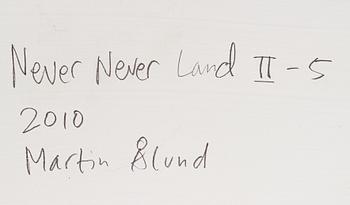 Never Never Land II - 5
2010
Martin Ålund